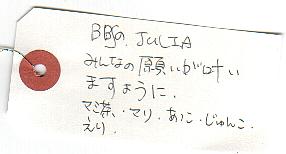 BBSの JULIA
みんなの願いが叶い
ますように.
マミ茶.・マリ・あっこ・じゅんこ.
えり.